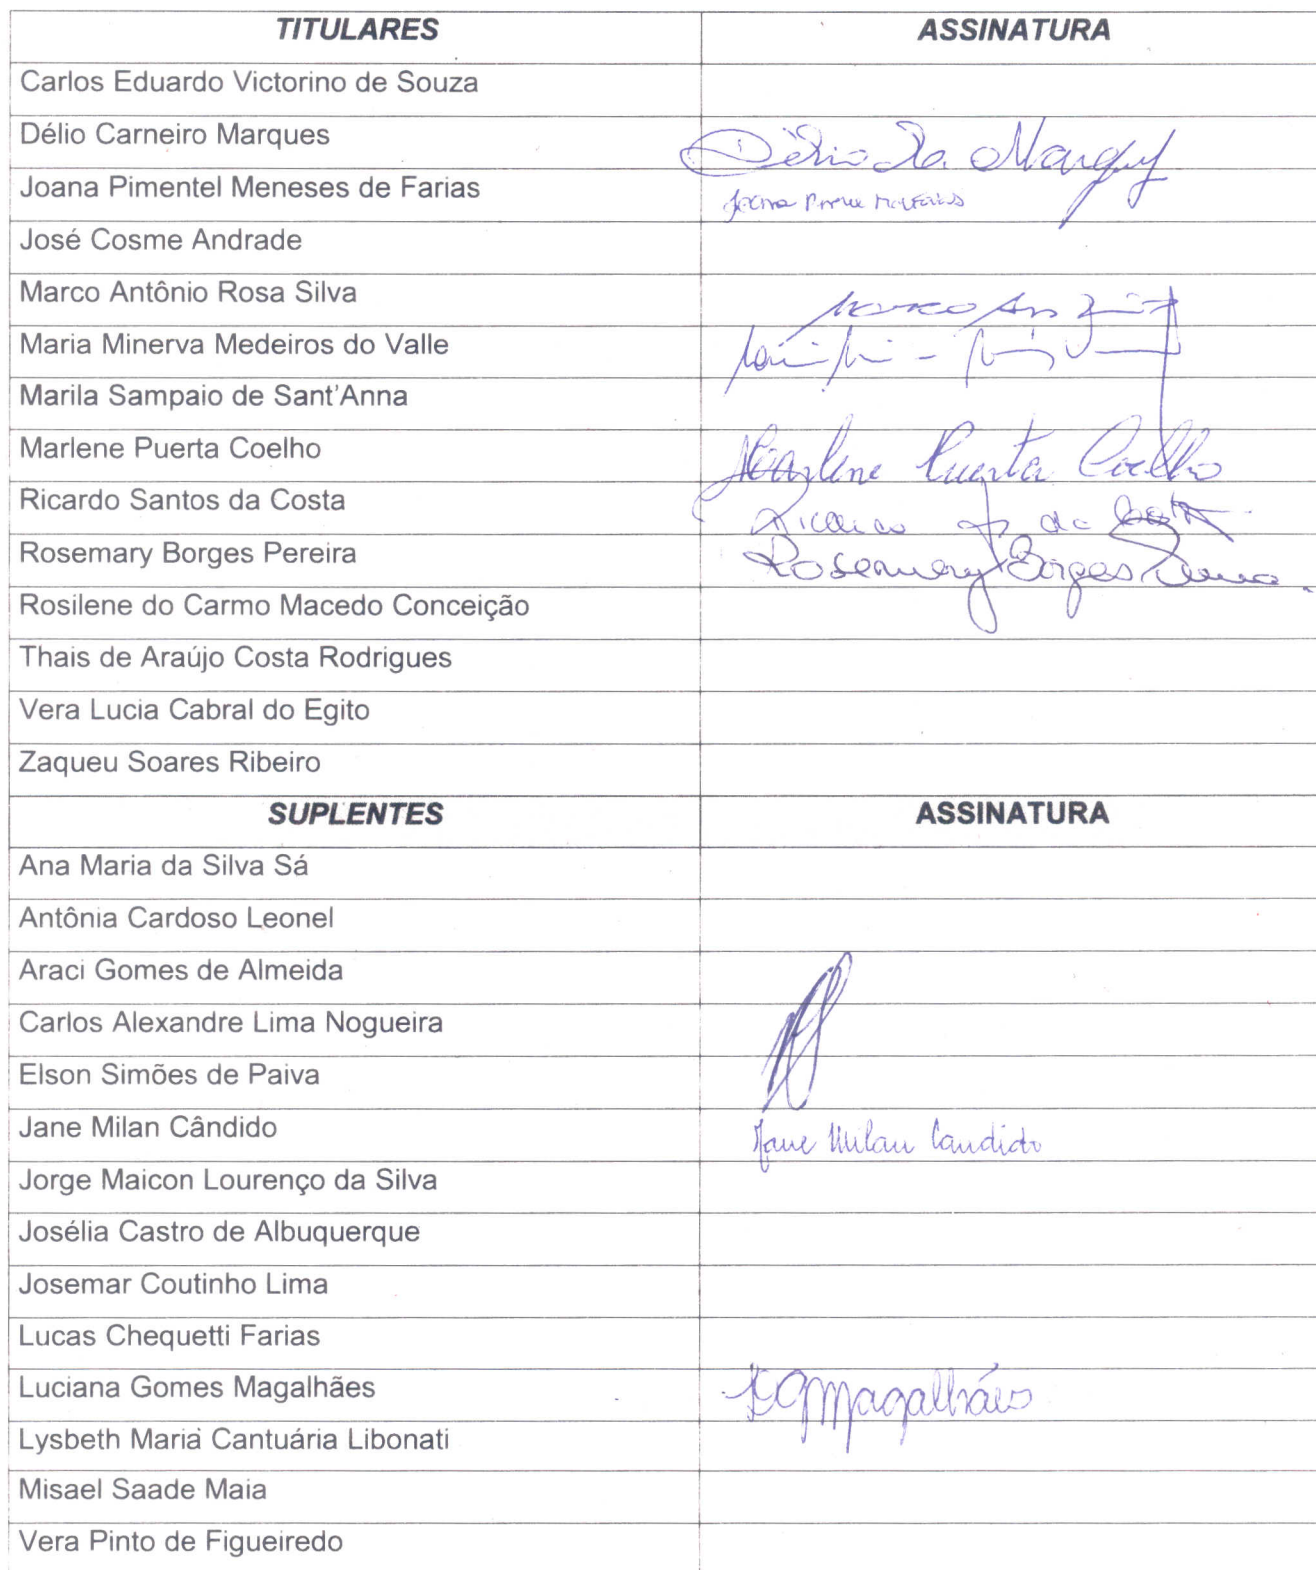 TITULARES ASSINATURA
Carlos Eduardo Victorino de Souza
Délio Carneiro Marques Délio
Joana Pimentel Meneses de Farias Joana
José Cosme Andrade
Marco Antônio Rosa Silva Marco
Maria Minerva Medeiros do Valle
Marila Sampaio de Sant'Anna
Marlene Puerta Coelho Marlene Puerta Coelho
Ricardo Santos da Costa Ricardo da Costa
Rosemary Borges Pereira Rosemary Borges Pereira
Rosilene do Carmo Macedo Conceição
Thais de Araújo Costa Rodrigues
Vera Lucia Cabral do Egito
Zaqueu Soares Ribeiro
SUPLENTES ASSINATURA
Ana Maria da Silva Sá
Antônia Cardoso Leonel
Araci Gomes de Almeida
Carlos Alexandre Lima Nogueira
Elson Simões de Paiva
Jane Milan Cândido Jane Milan Candido
Jorge Maicon Lourenço da Silva
Josélia Castro de Albuquerque
Josemar Coutinho Lima
Lucas Chequetti Farias
Luciana Gomes Magalhães LGMagalhães
Lysbeth Maria Cantuária Libonati
Misael Saade Maia
Vera Pinto de Figueiredo